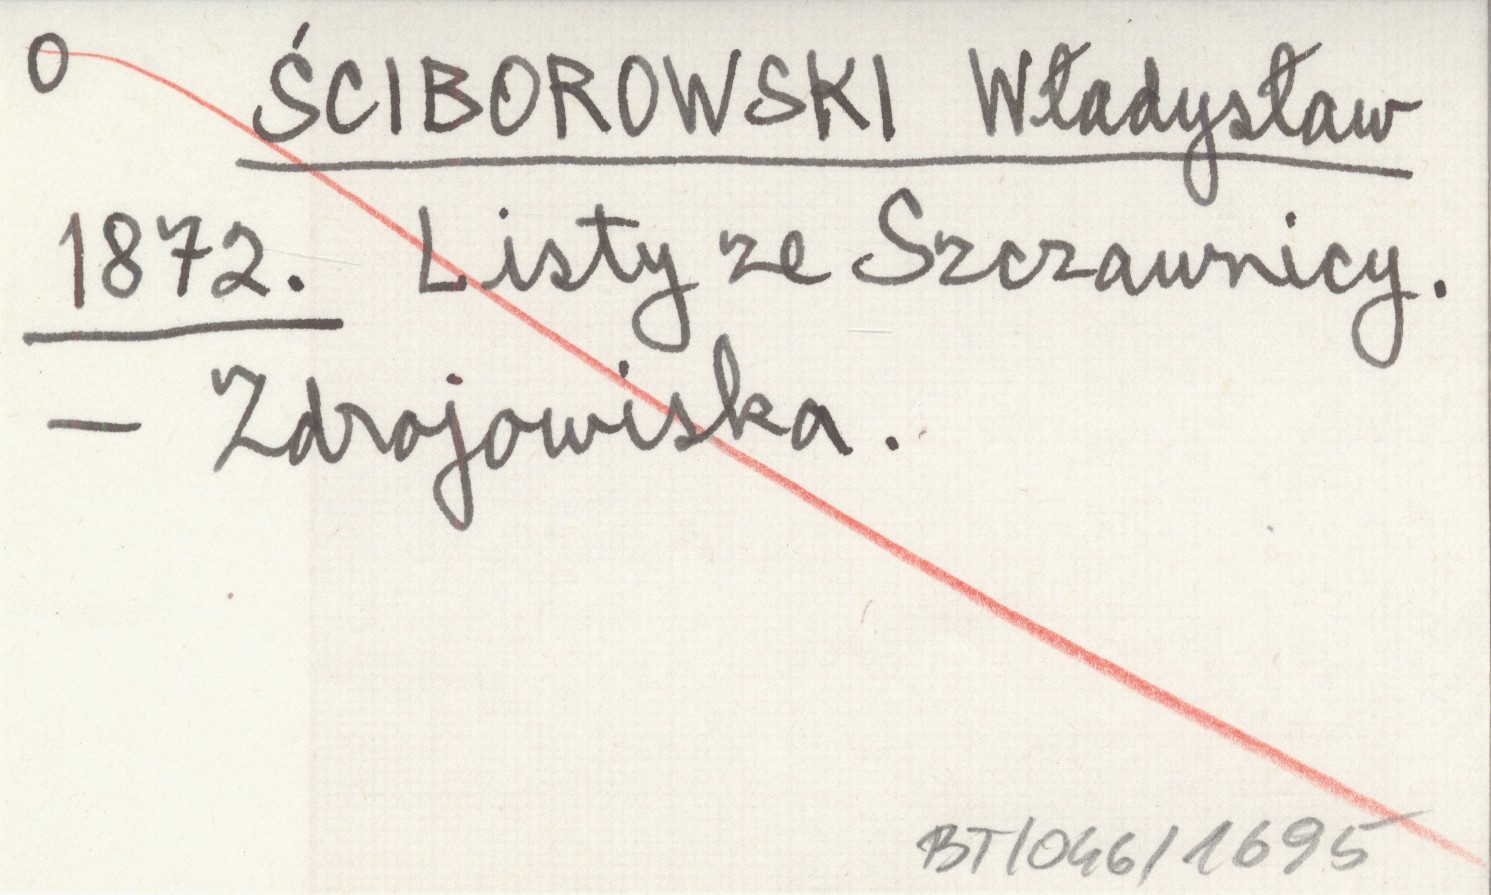 O ŚCIBOROWSKI Władysław
1872. Listy ze Szczawnicy.
— Zdrojowiska.
BT/046/1695